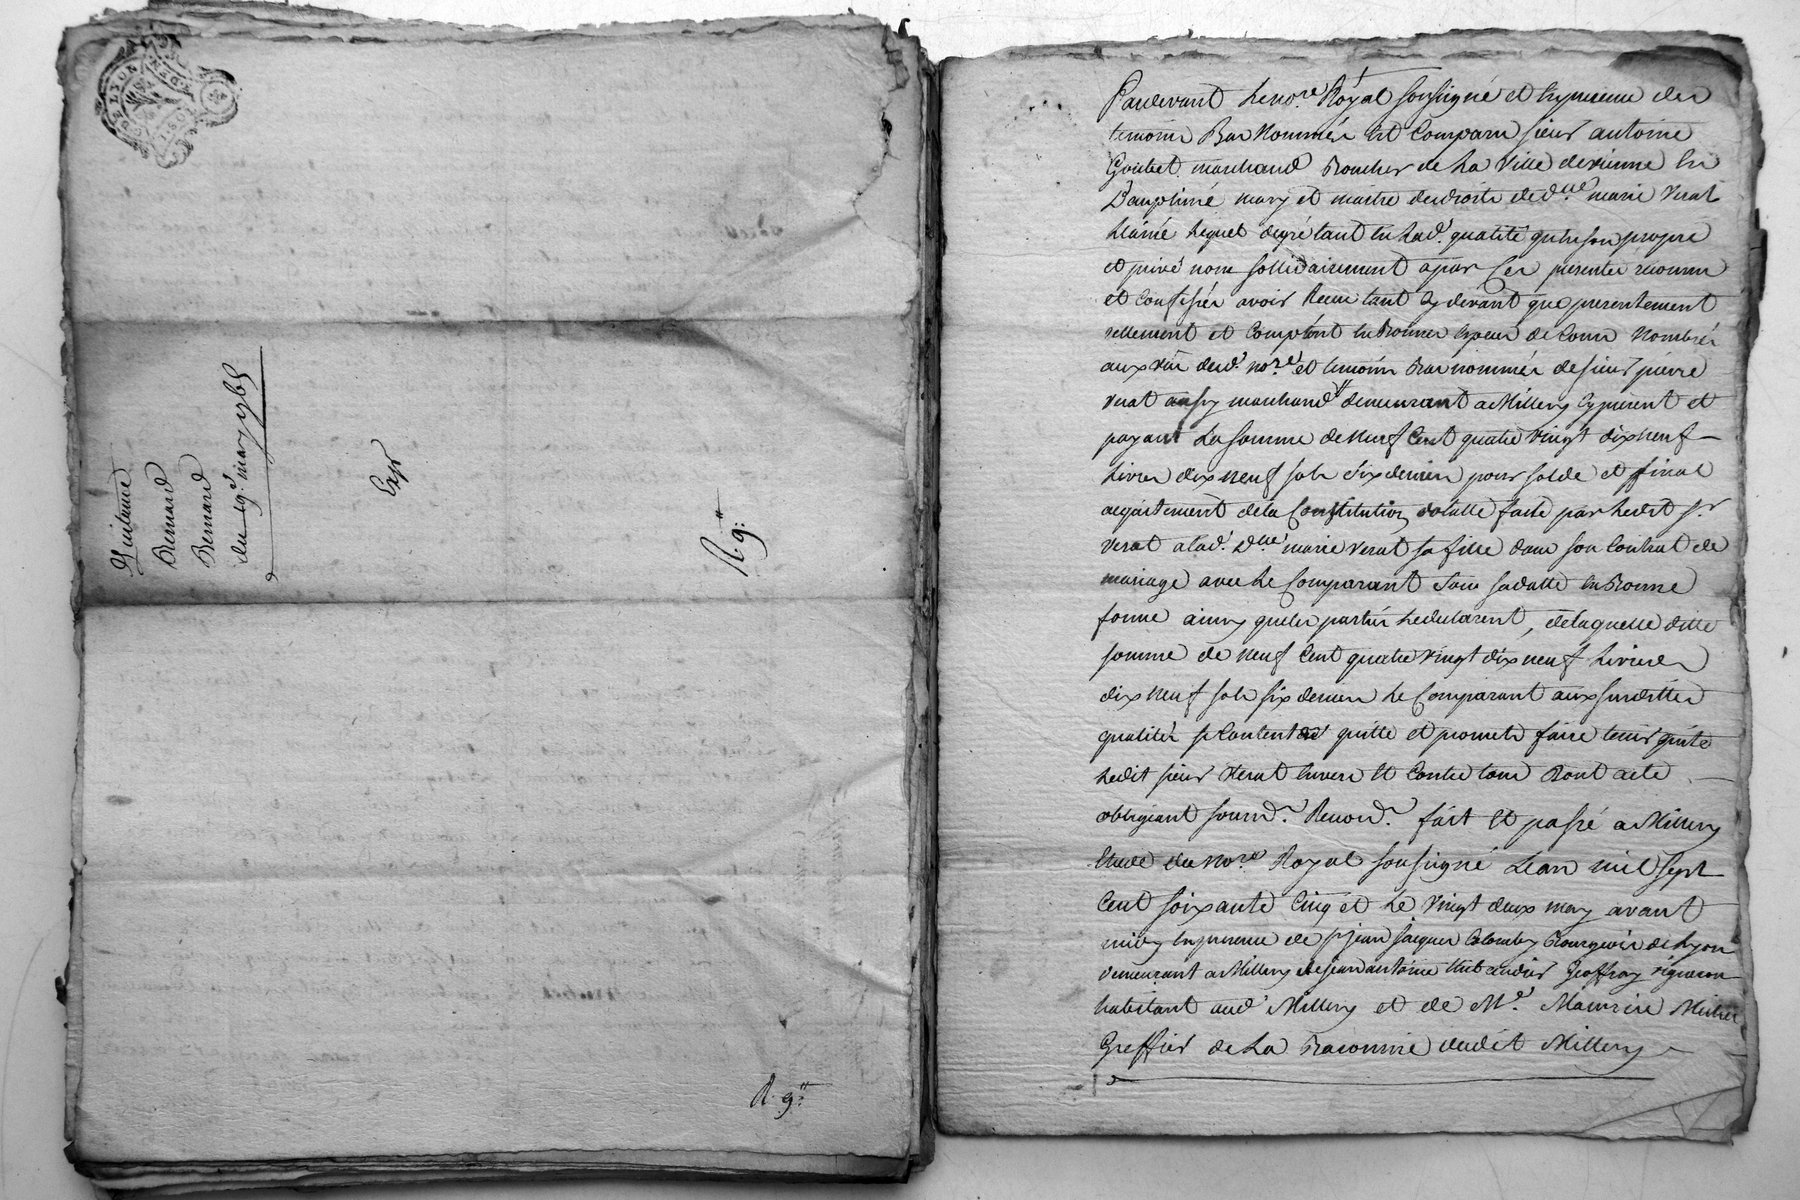 Quittance
Bernard
Bernard
du 19e may 1765
Exp
R 9:"
R. 9:"
Pardevant le no.re Royal soussigné et en presence des
temoins Bas Nommés est Comparu sieur antoine
Goubet marchand Boucher de La Ville de vienne En
Dauphiné mary et maitre des droits de d.lle marie Verat
Lainé Lequel de gré tant en lad. qualité qu'en son propre
et privé nom sollidairement a par Ces presentes reconnu
et Confessé avoir Receu tant Cy devant que presentement
réellement et Comptant en Bonnes especes de Cours Nombrés
aux vüe dud. no.re et temoins Bas nommés de sieur pierre
Verat aussy marchand demeurant a Millery Cy present et
payant La somme de Neuf Cent quatre Vingt dix neuf
Livres dix Neuf sols six deniers pour solde et final
acquittement de la Constitution dotalle faite par Ledit sr
Verat a lad. D.lle marie Verat sa fille dans son Contrat de
mariage avec Le Comparant sous sa datte en Bonne
forme ainsy que les parties Le declarent, de laquelle ditte
somme de Neuf Cent quatre Vingt dix neuf Livres
dix Neuf sols six deniers Le Comparant aux susdittes
qualités se Contente quitte et promets faire tenir quitte
Ledit sieur Verat Envers Et Contre tous Dont acte
obligeant soum.n Renon.n fait Et passé a Millery
Etude du No.re Royal soussigné Lan mil sept
Cent soixante Cinq et Le Vingt deux may avant
midy En presence de sr jean jacques Colomby Bourgeois de Lyon
demeurant a Millery de jean antoine Geoffray vigneron
habitant aud. Millery et de Me. Maurise
Greffier de La Baronnie dudit Millery